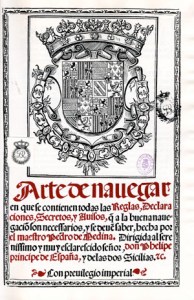 Arte de nauegar
en que se contienen todas las Reglas, Declara
ciones, Secretos, y Auisos, q̃ a la buena naue
gaciõ son necessarios, y se deuē saber, hecha por
el maestro Pedro de Medina. Dirigida al sere
nissimo y muy esclarescido señor, don Phelipe
principe de España, y delas dos Sicilias. ⁊c.
Con preuilegio imperial